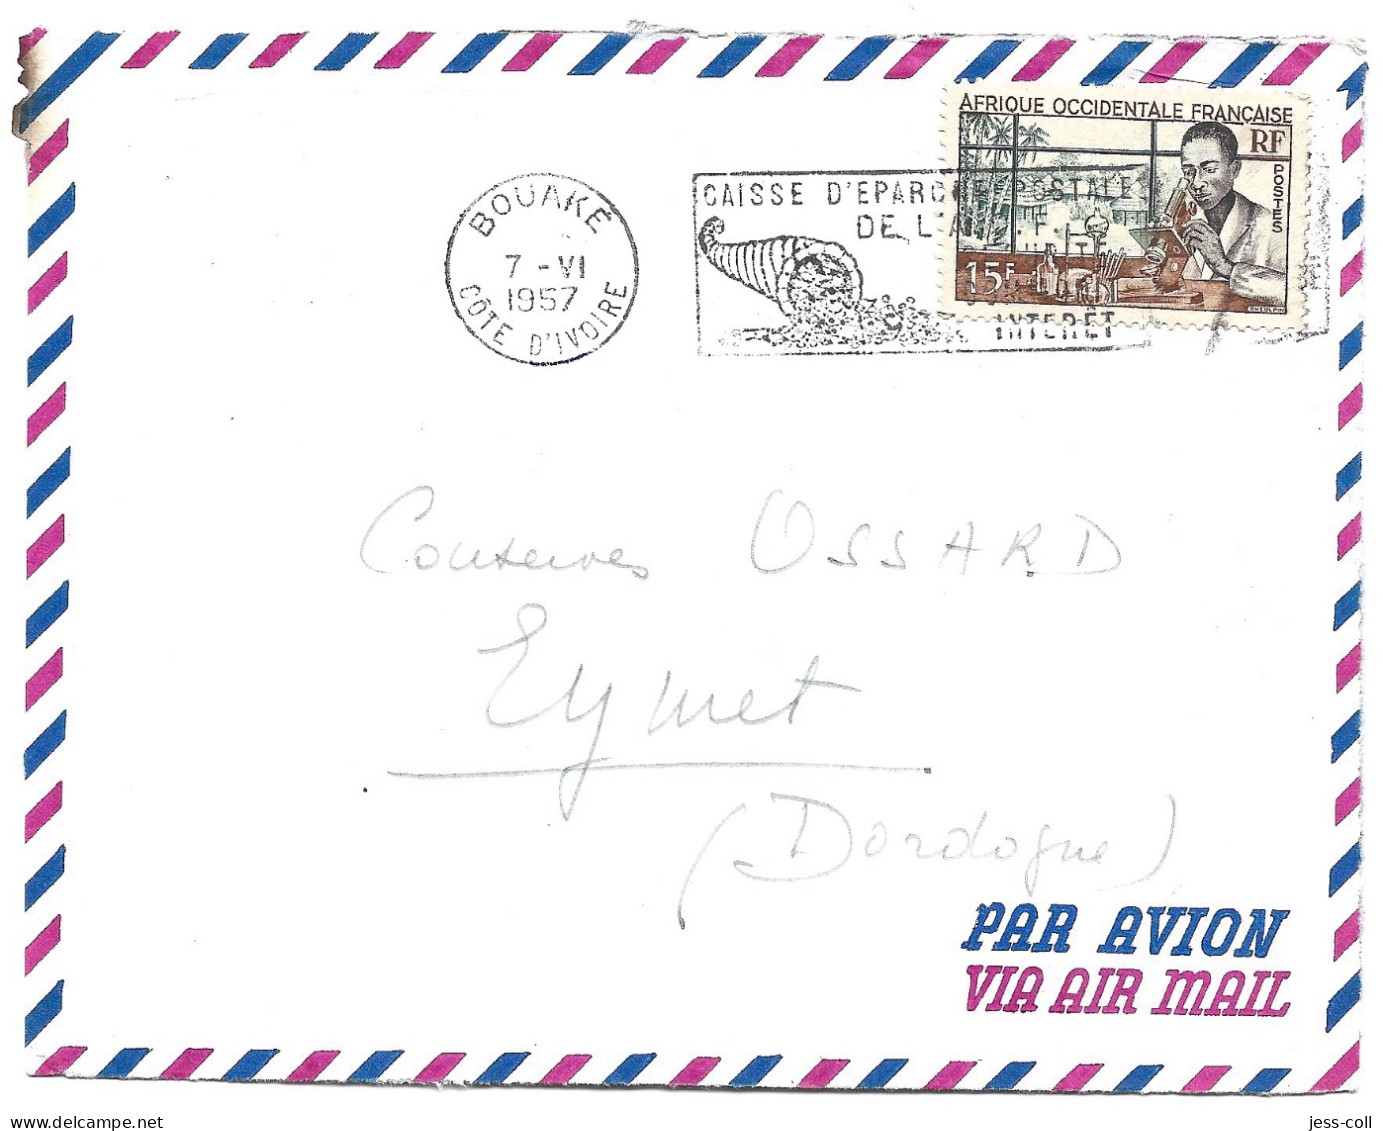 AFRIQUE OCCIDENTALE FRANÇAISE
RF
POSTES
15F
CHEULPIN
BOUAKÉ
7 -VI
1957
CÔTE D'IVOIRE
CAISSE D'EPARGNE POSTALE
DE L'A. F.
INTERET
Conserves OSSARD
Eymet
(Dordogne)
PAR AVION
VIA AIR MAIL
jess-coll